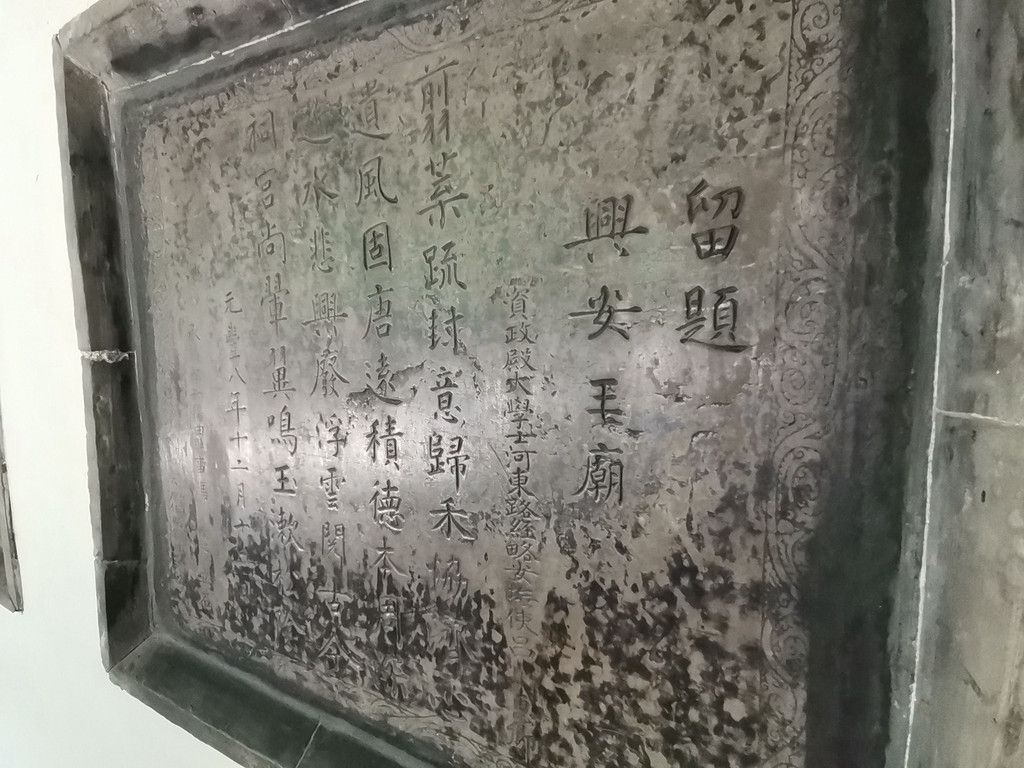 留題
興安王廟
資政殿大學士河東路經略安撫使呂
翦葉疏封意歸禾協
遺風固唐遠積德本周
逝水悲興廢浮雲閱古今
祠宮尚翬翼鳴玉漱松陰
元豐八年十二月十